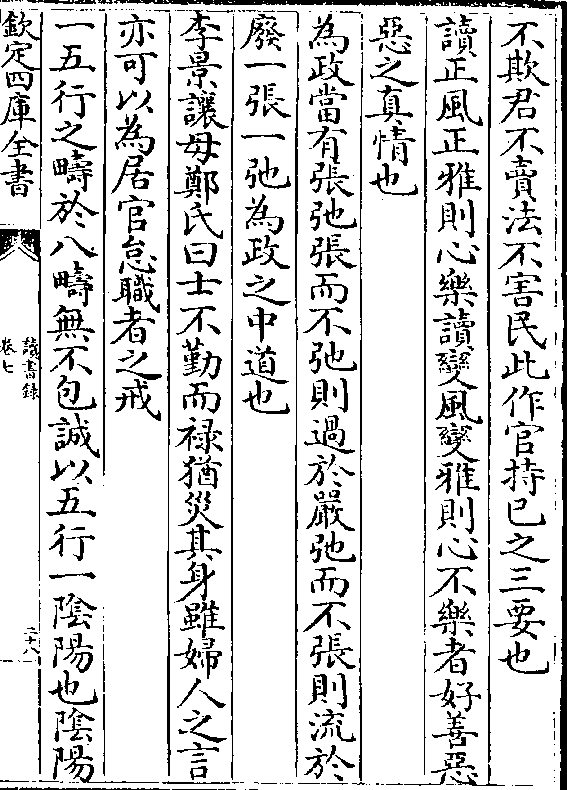 不欺君不賣法不害民此作官持已之三要也
讀正風正雅則心樂讀變風變雅則心不樂者好善惡
惡之真情也
為政當有張弛張而不弛則過於嚴弛而不張則流於
廢一張一弛為政之中道也
李景讓母鄭氏曰士不勤而祿猶災其身雖婦人之言
亦可以為居官怠職者之戒
一五行之疇於八疇無不包誠以五行一陰陽也陰陽
欽定四庫全書
讀書錄
卷七
二十八